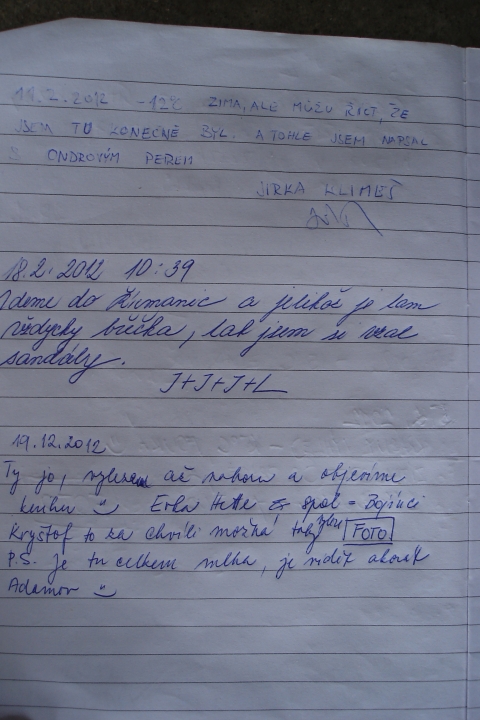 11.2.2012 -12°C ZIMA, ALE MŮŽU ŘÍCT, ŽE
JSEM TU KONEČNĚ BYL. A TOHLE JSEM NAPSAL
S ONDROVÝM PEREM
JIRKA KLIMEŠ
18.2.2012 10:39
Jdeme do Heřmanic a jelikož je tam
vždycky břečka, tak jsem si vzal
sandály.
J+J+J+L
19.12.2012
Ty jo, vylezem až nahoru a objevíme
knihu Erka spol = Bojínci
Kryštof to za chvíli možná taky FOTO
P.S. Je tu celkem mlha, je vidět akorát
Adamov